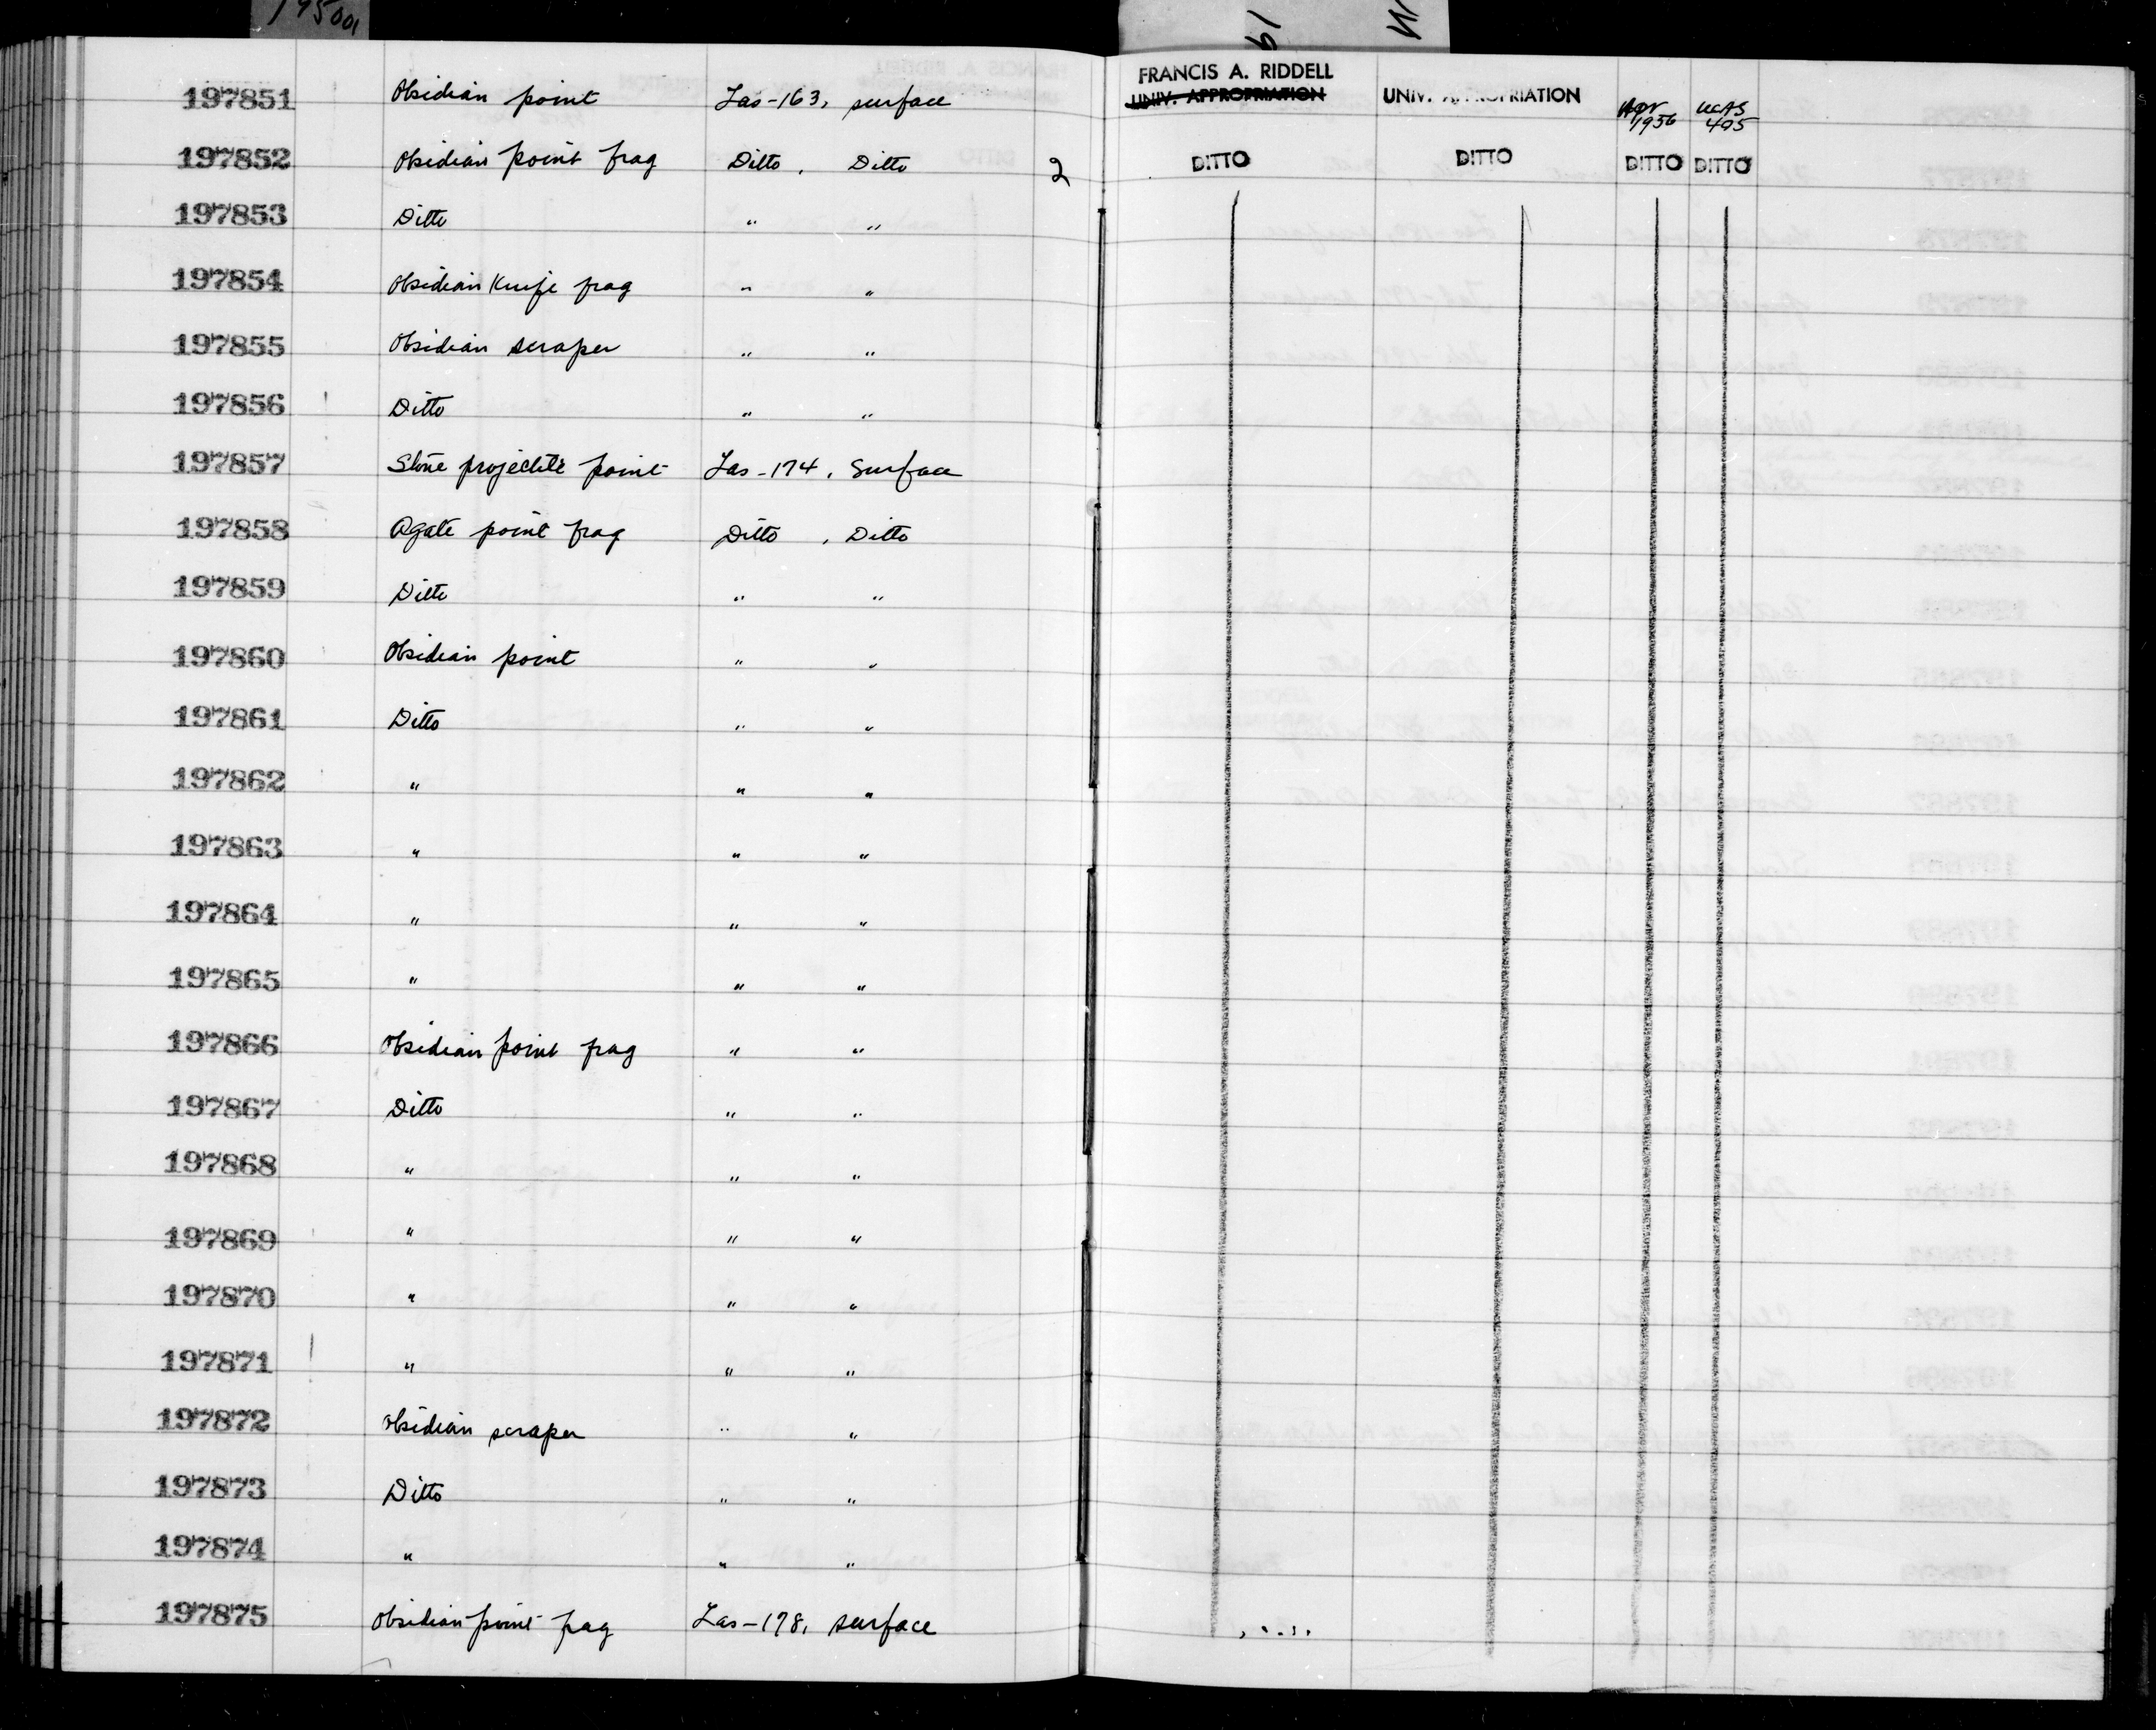 195001
19
FRANCIS A. RIDDELL
197851 Obsidian point Las-163, surface UNIV. APPROPRIATION UNIV. APPROPRIATION Apr 1956 UCAS 405
197852 Obsidian point frag Ditto, Ditto 2 DITTO DITTO DITTO DITTO
197853 Ditto " "
197854 Obsidian Knife frag " "
197855 Obsidian scraper " "
197856 Ditto " "
197857 Stone projectile point Las-174, Surface
197858 Agate point frag Ditto, Ditto
197859 Ditto " "
197860 Obsidian point " "
197861 Ditto " "
197862 " " "
197863 " " "
197864 " " "
197865 " " "
197866 Obsidian point frag " "
197867 Ditto " "
197868 " " "
197869 " " "
197870 " " "
197871 " " "
197872 Obsidian scraper " "
197873 Ditto " "
197874 " " "
197875 Obsidian point frag Las-178, surface